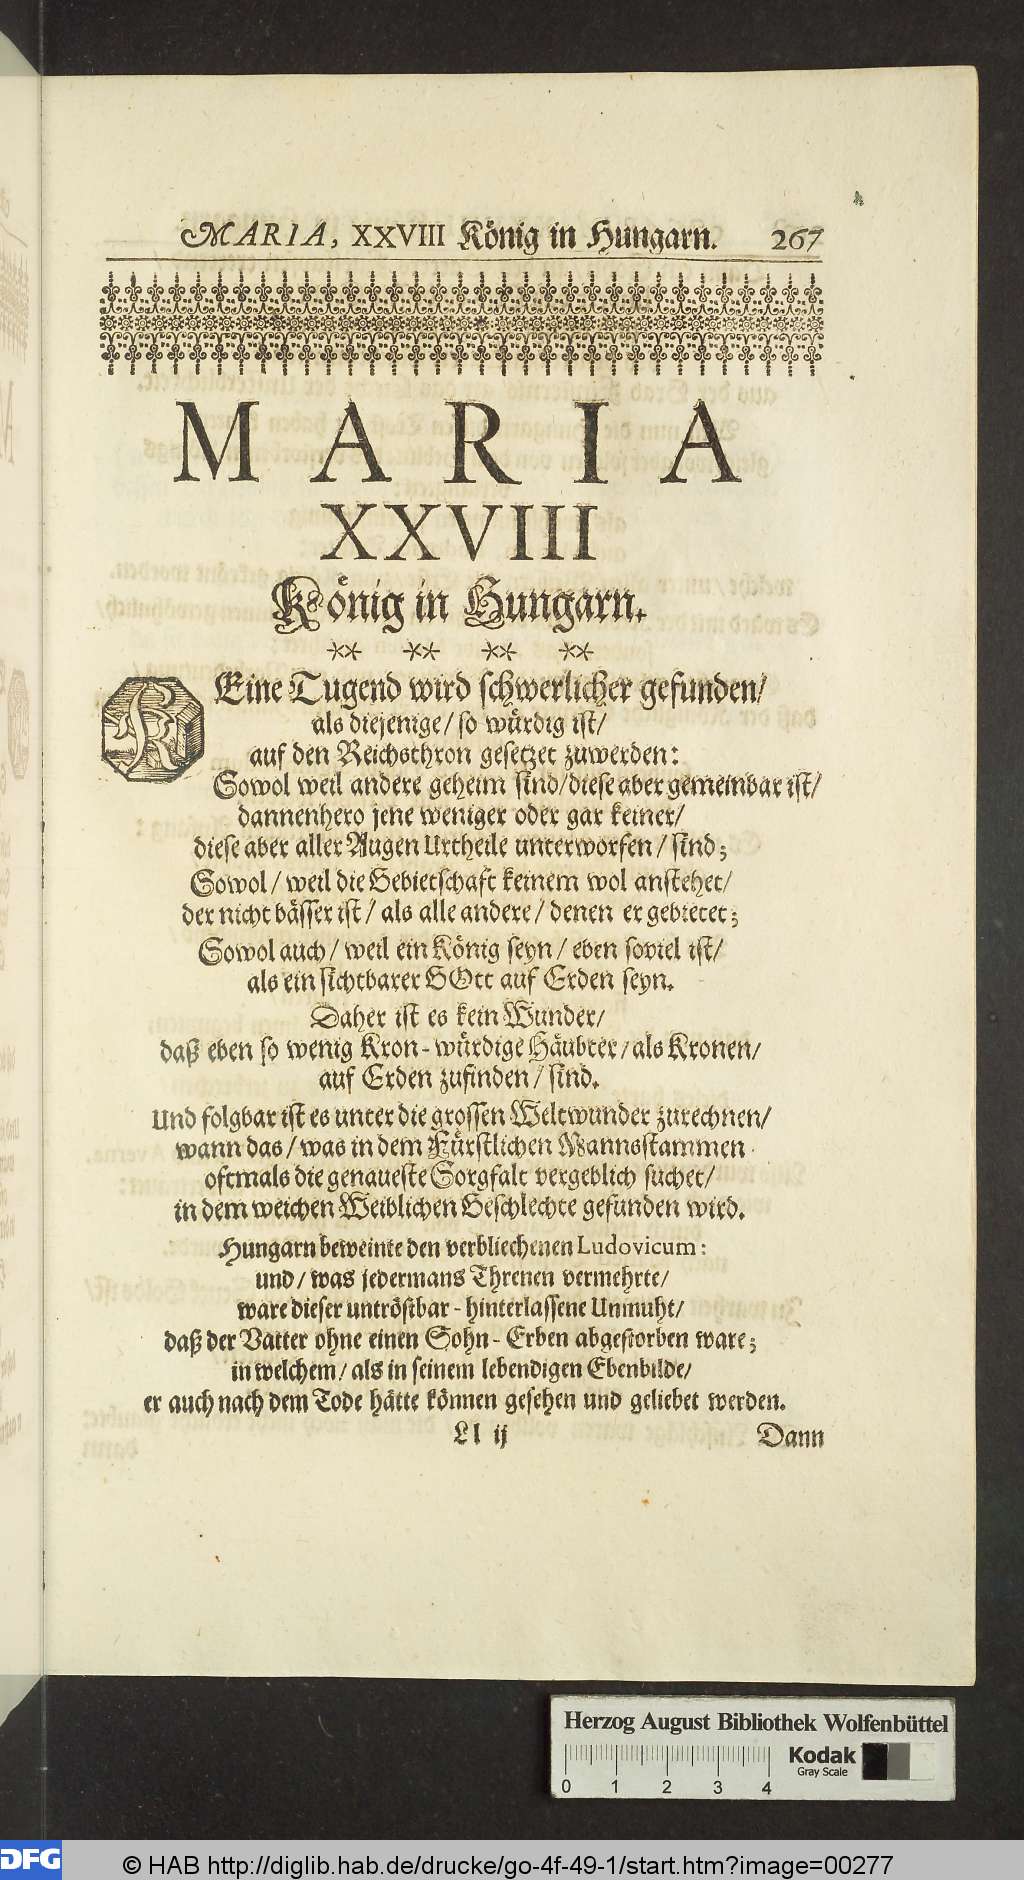 MARIA, XXVIII König in Hungarn. 267
MARIA
XXVIII
König in Hungarn.
** ** ** **
KEine Tugend wird schwerlicher gefunden/
als diejenige/ so würdig ist/
auf den Reichsthron gesetzet zuwerden:
Sowol weil andere geheim sind/diese aber gemeinbar ist/
dannenhero jene weniger oder gar keiner/
diese aber aller Augen Urtheile unterworfen/ sind;
Sowol/ weil die Gebietschaft keinem wol anstehet/
der nicht bässer ist/ als alle andere/ denen er gebietet;
Sowol auch/ weil ein König seyn/ eben soviel ist/
als ein sichtbarer GOtt auf Erden seyn.
Daher ist es kein Wunder/
daß eben so wenig Kron-würdige Häubter/als Kronen/
auf Erden zufinden/ sind.
Und folgbar ist es unter die grossen Weltwunder zurechnen/
wann das/ was in dem Fürstlichen Mannsstammen
oftmals die genaueste Sorgfalt vergeblich suchet/
in dem weichen Weiblichen Geschlechte gefunden wird.
Hungarn beweinte den verbliechenen Ludovicum:
und/ was jedermans Threnen vermehrte/
ware dieser untröstbar-hinterlassene Unmuht/
daß der Vatter ohne einen Sohn-Erben abgestorben ware;
in welchem/ als in seinem lebendigen Ebenbilde/
er auch nach dem Tode hätte können gesehen und geliebet werden.
Ll ij Dann
Herzog August Bibliothek Wolfenbüttel
Kodak
Gray Scale
0 1 2 3 4
DFG
© HAB http://diglib.hab.de/drucke/go-4f-49-1/start.htm?image=00277